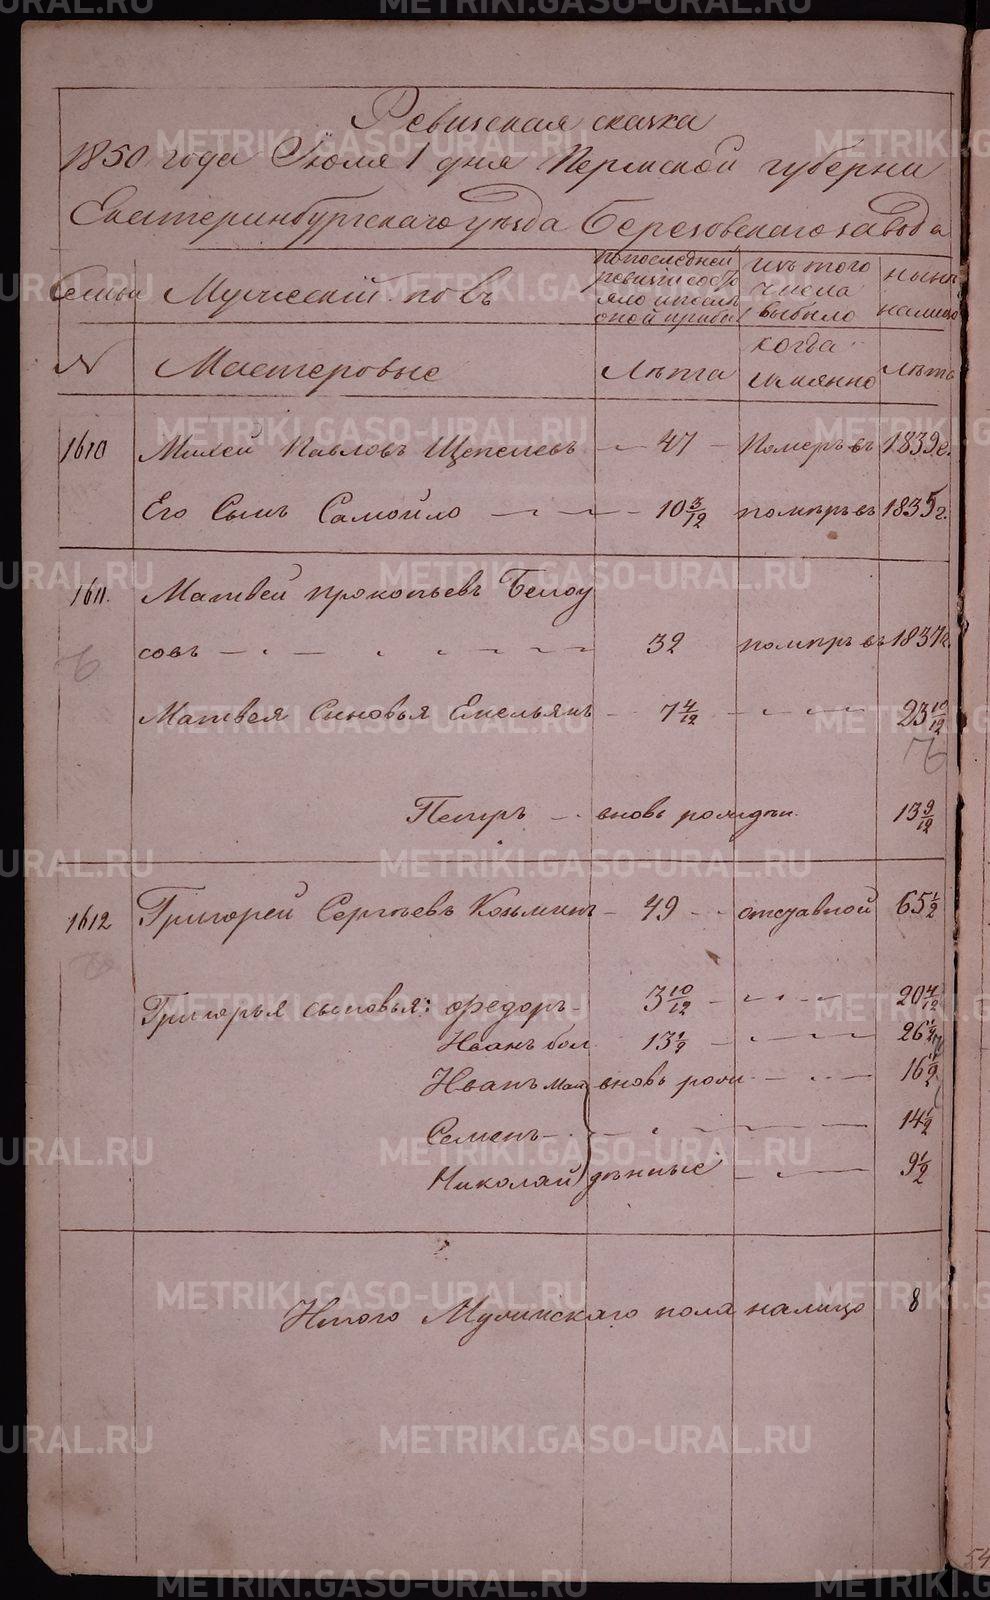 Ревизская сказка
1850 года Июля 1 дня Пермской губернии
Екатеринбургскаго уезда Березовскаго завода
Семьи Мужеский полъ
по последней ревизии состояло и после оной прибыло
изъ того числа выбыло
ныне налицо
№ Мастеровые Лета когда имянно лета
1610 Михей Павловъ Щепелевъ 47 Померъ въ 1839 г.
Его Сынъ Самойло 10 3/12 померъ въ 1835 г.
1611. Матвей Прокопьевъ Белоу
совъ 32 померъ въ 1837 г.
Матвея Сыновья Емельянъ 7 4/12 23 10/12
Петръ вновь рожден. 13 9/12
1612 Григорей Сергеевъ Козьминъ 49 отставной 65 1/2
Григорья сыновья: Федоръ 3 10/12 20 4/12
Иванъ бол. 13 1/2 26 1/2
Иванъ мал. вновь рож 16 1/2
Семенъ 14 1/2
Николай денные 9 1/2
Итого Мужескаго пола налицо 8
54
METRIKI.GASO-URAL.RU